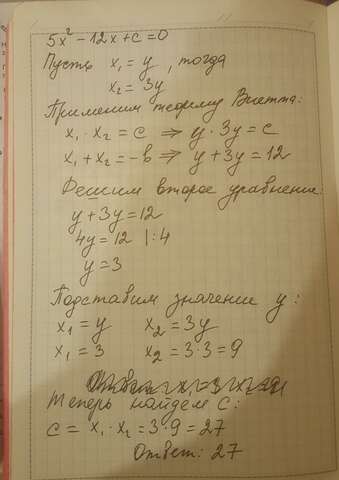 5x² - 12x + c = 0
Пусть x₁ = y , тогда
x₂ = 3y
Применим теорему Виетта:
x₁ · x₂ = c ⇒ y · 3y = c
x₁ + x₂ = -b ⇒ y + 3y = 12
Решим второе уравнение:
y + 3y = 12
4y = 12 | : 4
y = 3
Подставим значение y :
x₁ = y x₂ = 3y
x₁ = 3 x₂ = 3 · 3 = 9
Теперь найдем c :
c = x₁ · x₂ = 3 · 9 = 27
Ответ: 27